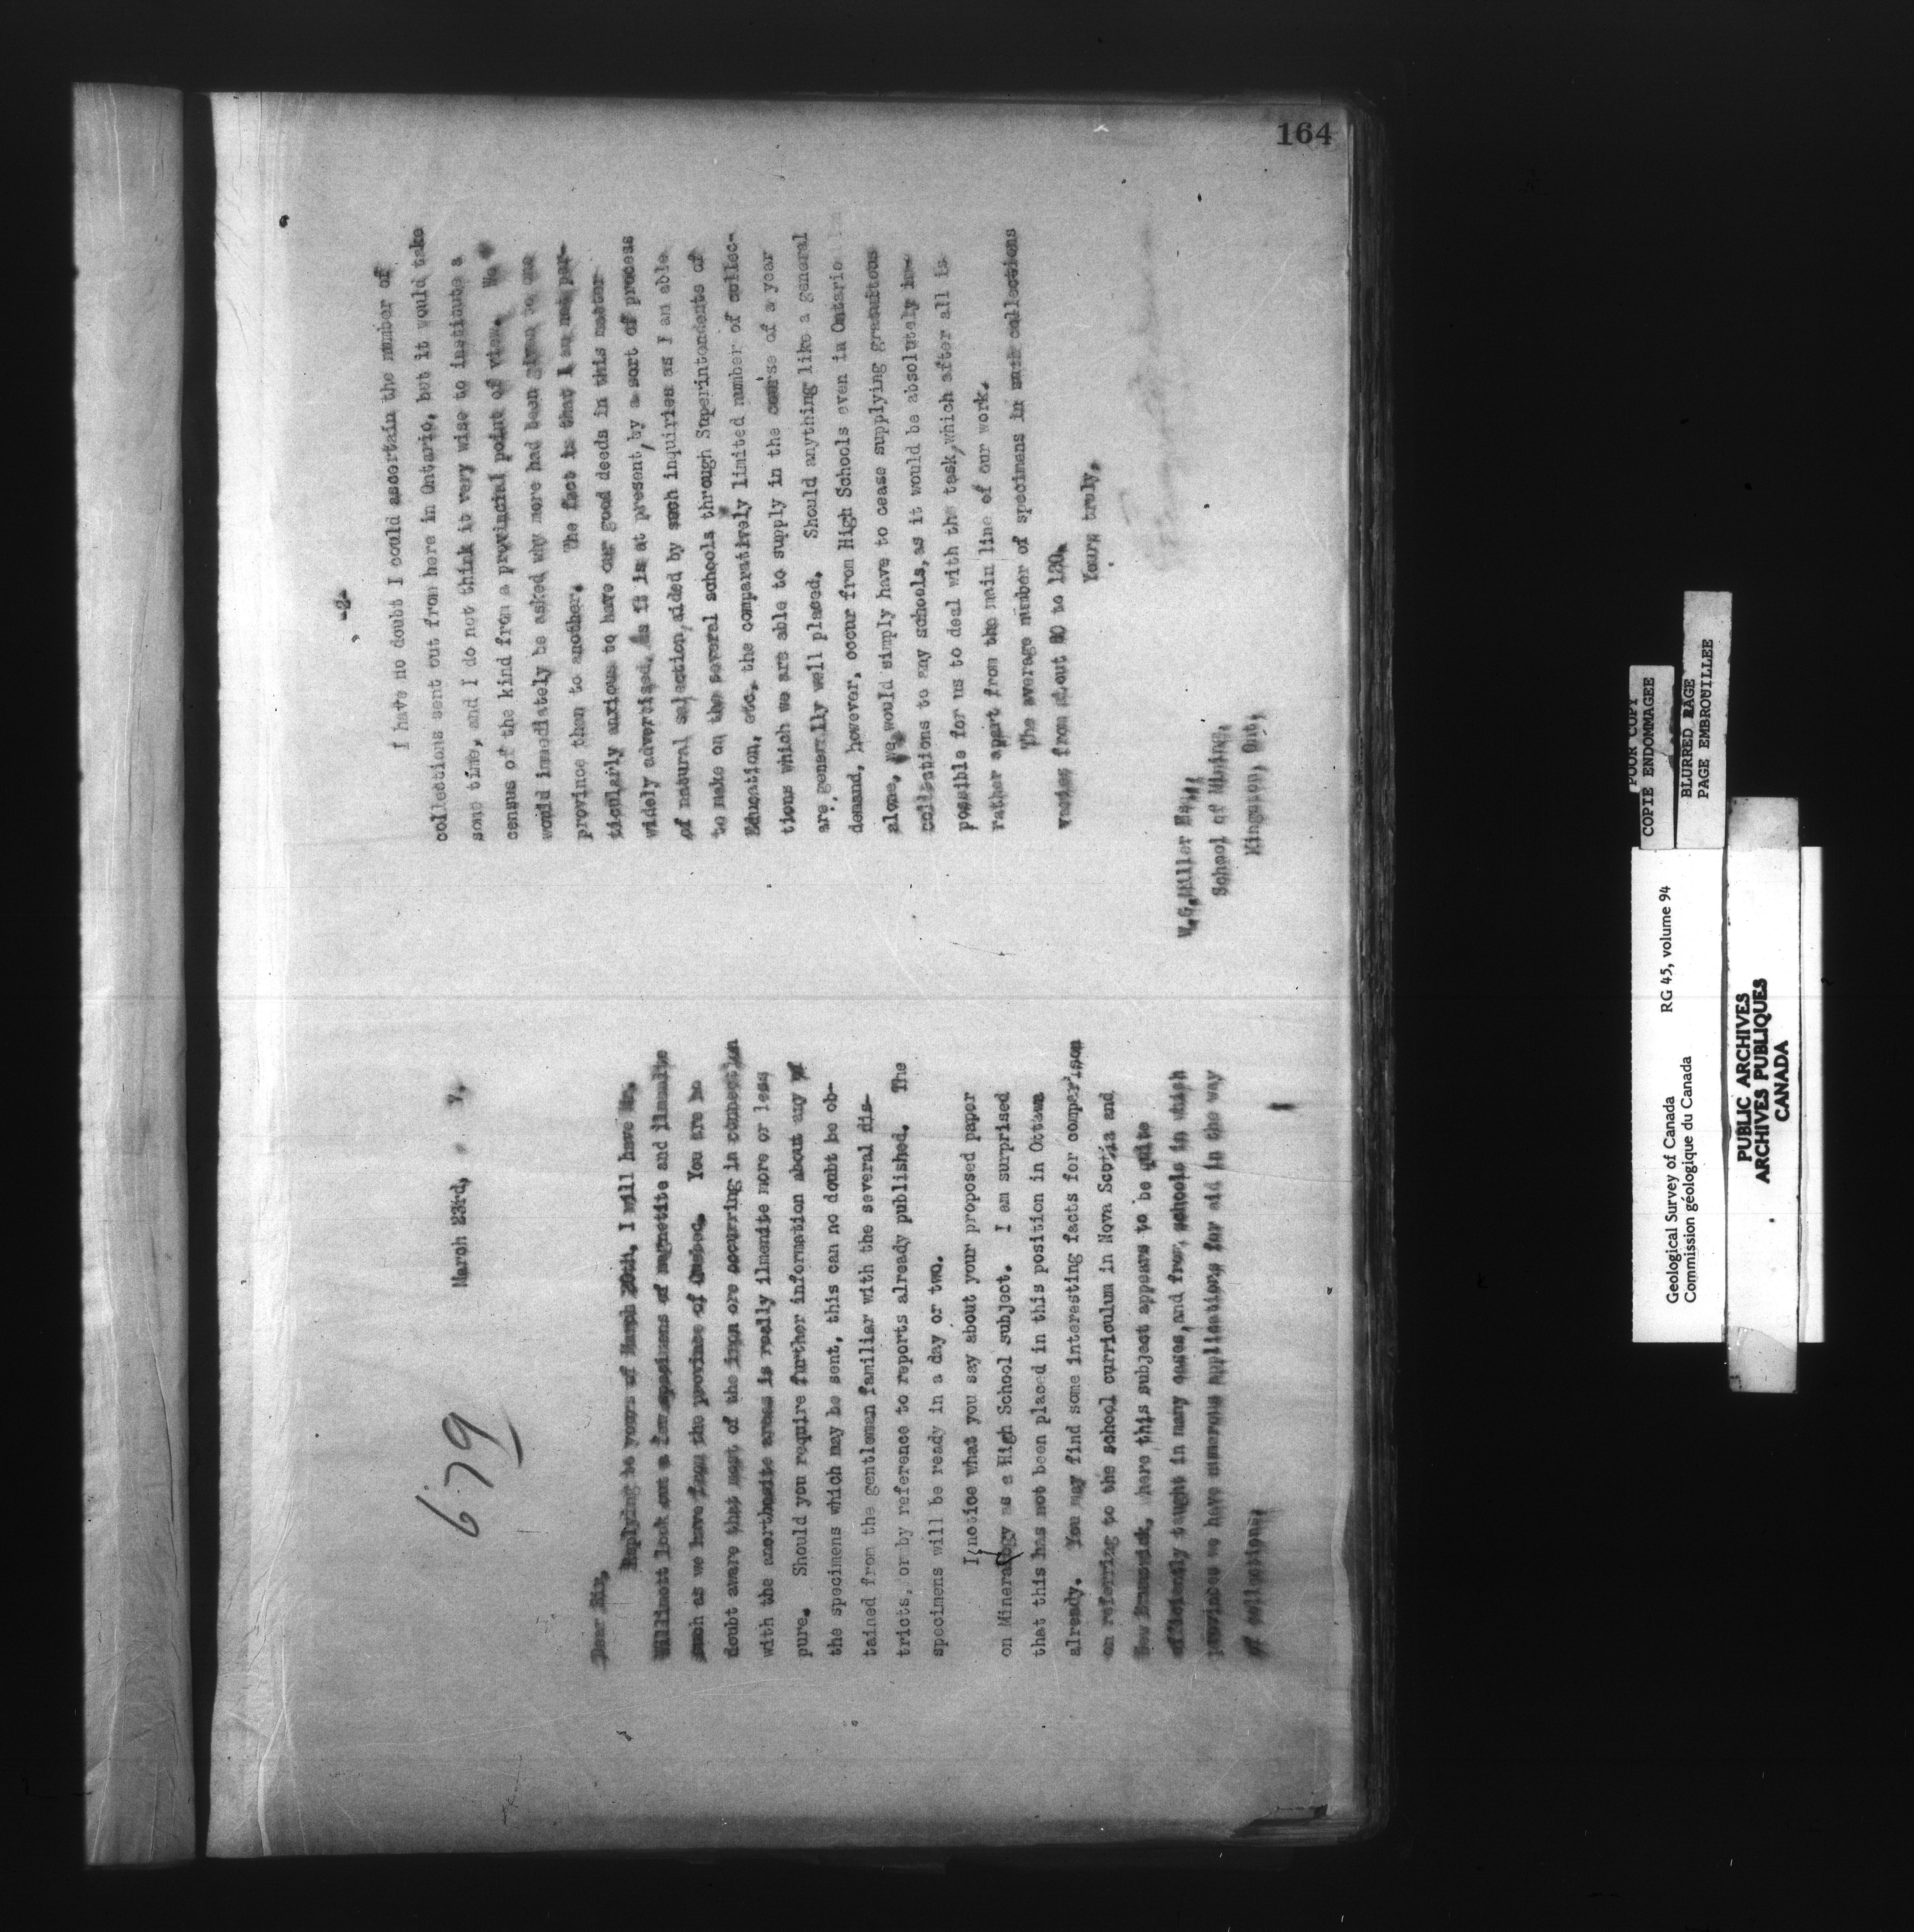 164
679
March 23rd,                    7.
Dear Sir,
Replying to yours of March 20th, I will have Mr.
Willimott look out a few specimens of magnetite and ilmenite
such as we have from the province of Quebec. You are no
doubt aware that most of the iron ore occurring in connection
with the anorthosite areas is really ilmenite more or less
pure. Should you require further information about any of
the specimens which may be sent, this can no doubt be ob-
tained from the gentleman familiar with the several dis-
tricts, or by reference to reports already published. The
specimens will be ready in a day or two.
I notice what you say about your proposed paper
on Mineralogy as a High School subject. I am surprised
that this has not been placed in this position in Ottawa
already. You may find some interesting facts for comparison
on referring to the school curriculum in Nova Scotia and
New Brunswick, where this subject appears to be quite
efficiently taught in many cases, and from schools in which
provinces we have numerous applications for aid in the way
of collections.
-2-
I have no doubt I could ascertain the number of
collections sent out from here in Ontario, but it would take
some time, and I do not think it very wise to institute a
census of the kind from a provincial point of view. We
would immediately be asked why more had been given to one
province than to another. The fact is that I am not par-
ticularly anxious to have our good deeds in this matter
widely advertised. As it is at present, by a sort of process
of natural selection, aided by such inquiries as I am able
to make on the several schools through Superintendents of
Education, etc., the comparatively limited number of collec-
tions which we are able to supply in the course of a year
are generally well placed. Should anything like a general
demand, however, occur from High Schools even in Ontario
alone, we would simply have to cease supplying gratuitous
collections to any schools, as it would be absolutely im-
possible for us to deal with the task, which after all is
rather apart from the main line of our work.
The average number of specimens in such collections
varies from about 80 to 120.
Yours truly,
W.G. Miller Esq.,
School of Mining,
Kingston, Ont.
POOR COPY
COPIE ENDOMMAGEE
BLURED PAGE
PAGE EMBROUILLEE
Geological Survey of Canada RG 45, volume 94
Commission géologique du Canada
PUBLIC ARCHIVES
ARCHIVES PUBLIQUES
CANADA